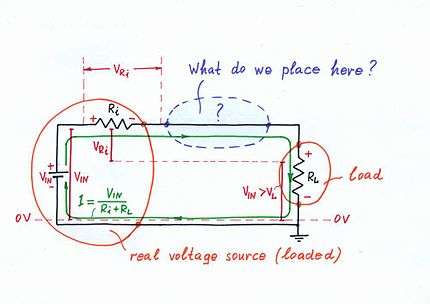 VRi
What do we place here?
Ri
+ -
?
VRi
+
VIN
-
VIN
I = VIN / Ri+RL
VIN > VL
+
RL
-
load
0V
0V
real voltage source (loaded)